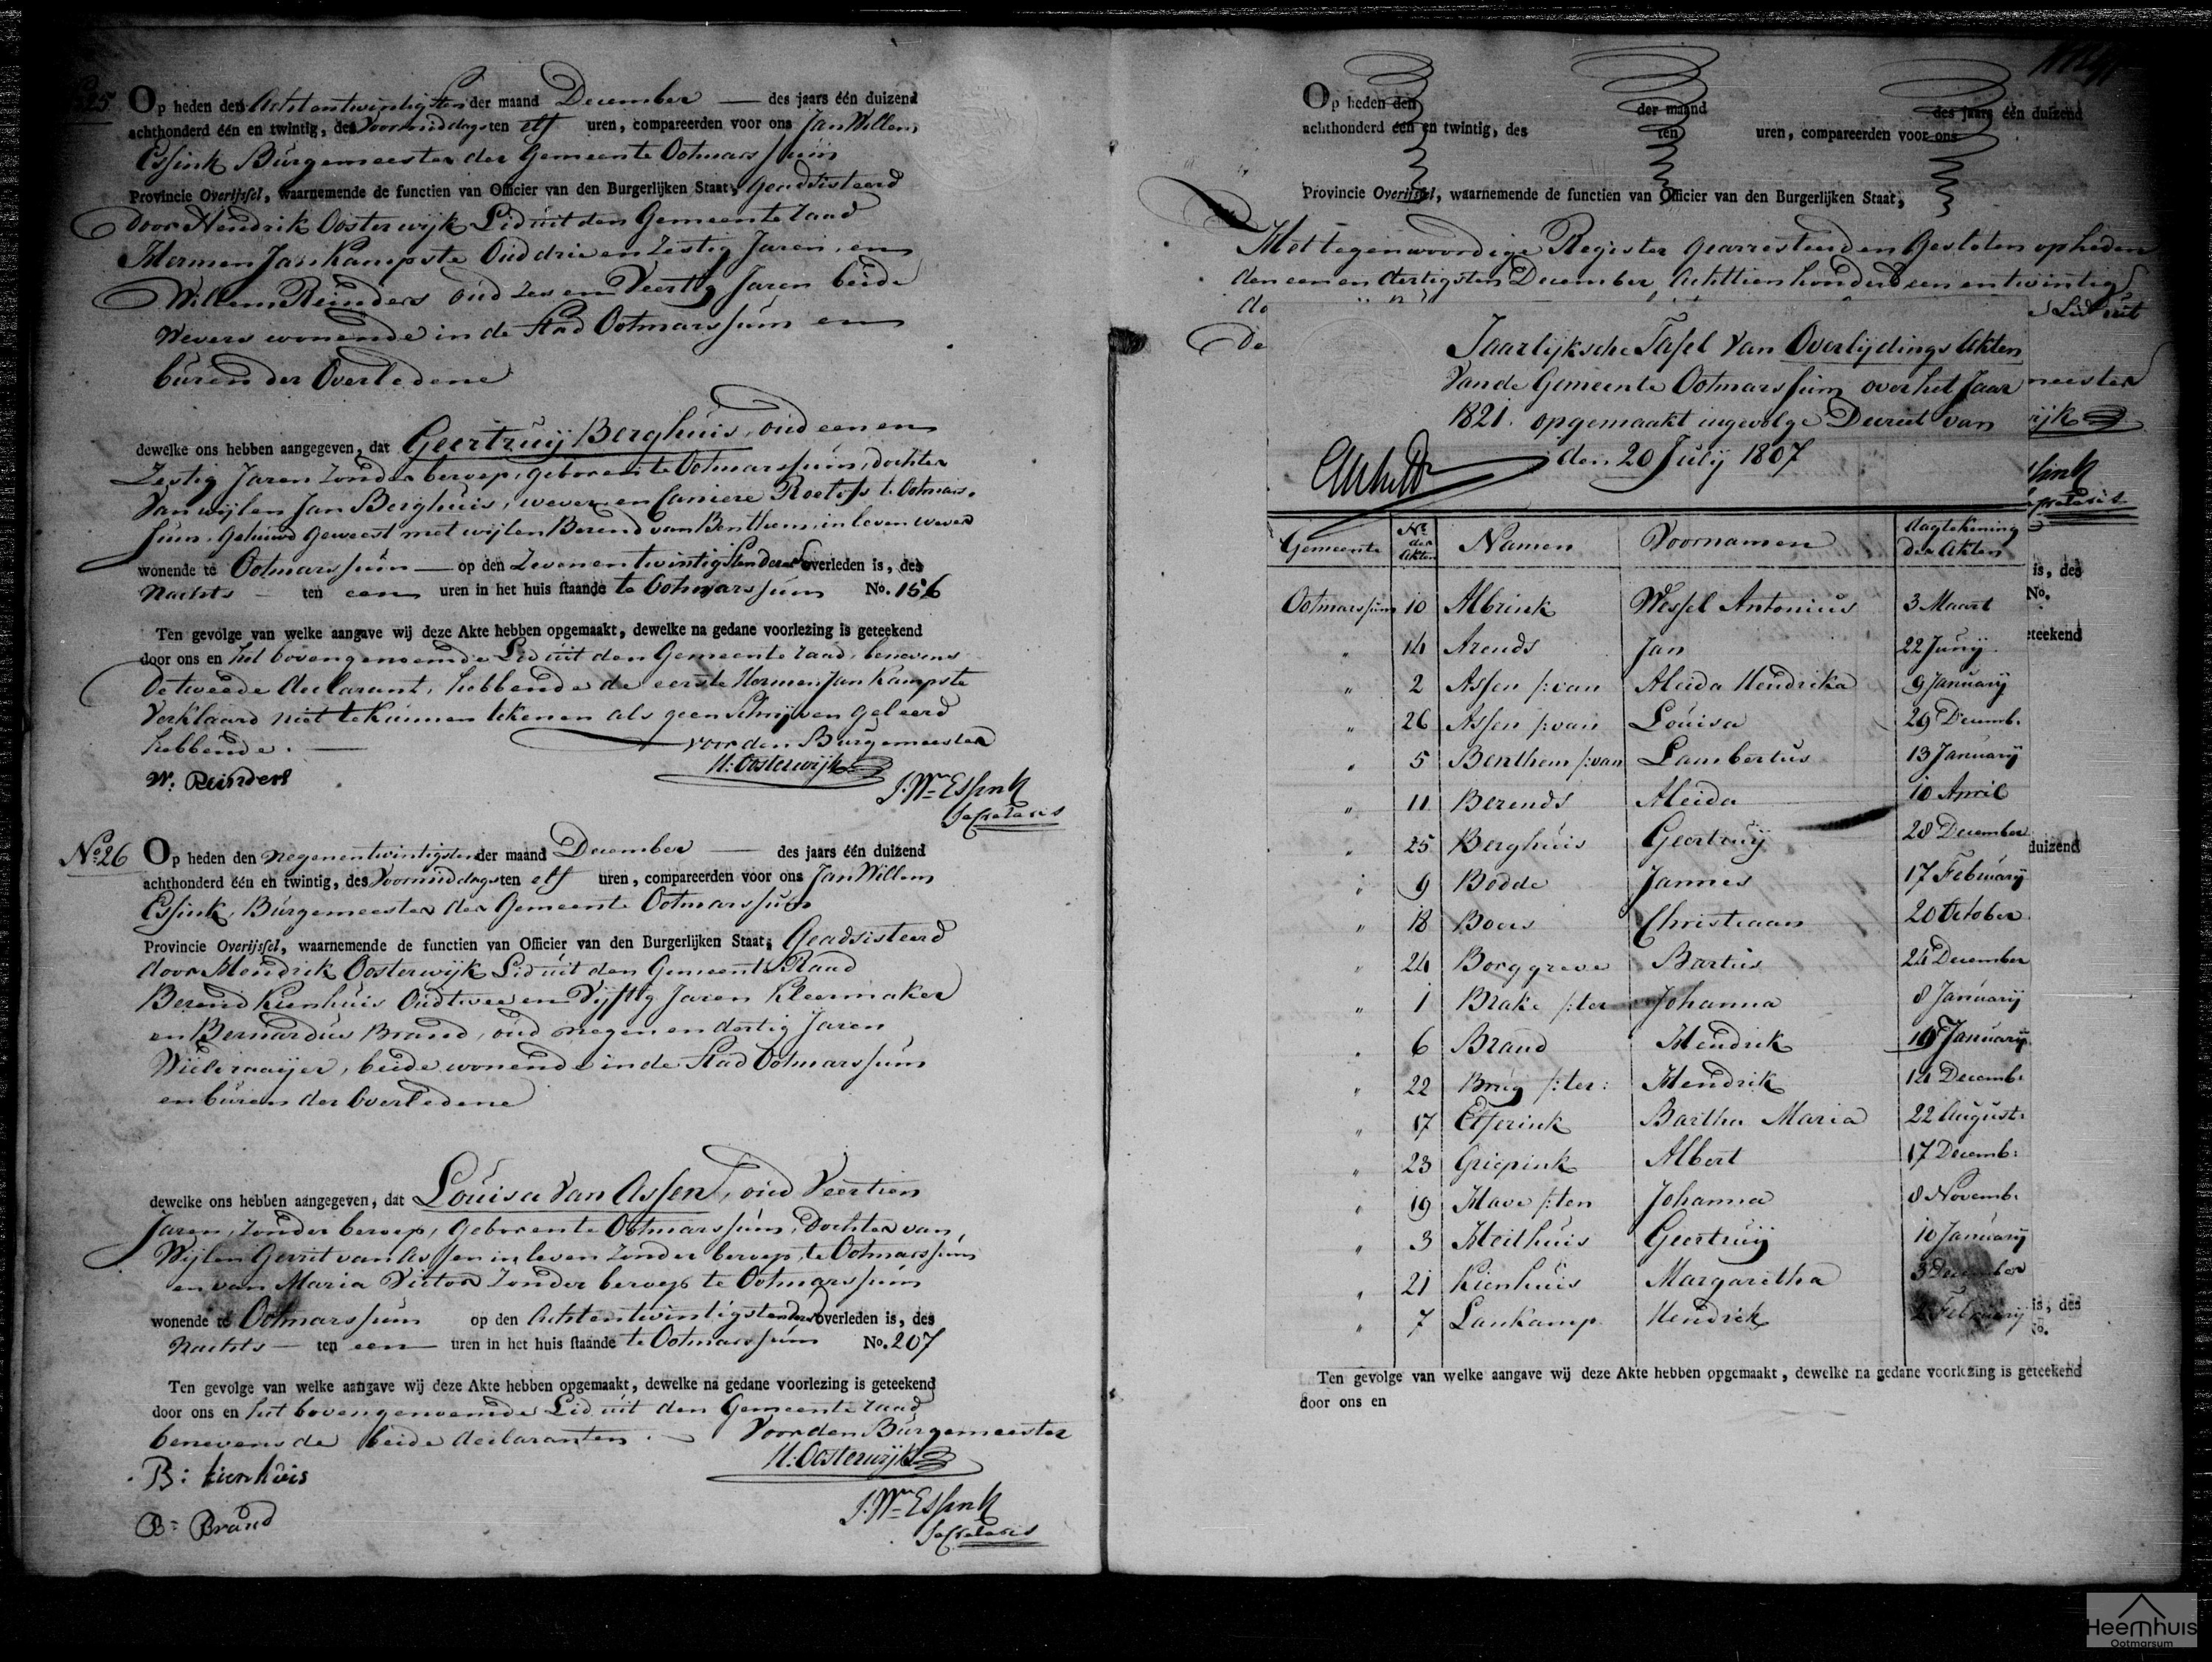 25 Op heden den Achtentwintigsten der maand December — des jaars één duizend
achthonderd één en twintig, des Voormiddags ten elf uren, compareerden voor ons Jan Willem
Essink Burgemeester der Gemeente Ootmarssum
Provincie Overijssel, waarnemende de functien van Officier van den Burgerlijken Staat, Geadsisteerd
door Hendrik Oosterwijk Lid uit den Gemeente raad
Hermen Jan Kampste Oud drie en Zestig Jaren, en
Willem Reinders oud zes en Veertig Jaren beide
wevers wonende in de Stad Ootmarssum en
buren der Overledene
dewelke ons hebben aangegeven, dat Geertruij Berghuis, oud een en
Zestig Jaren zonder beroep, geboren te Ootmarssum, dochter
Van wijlen Jan Berghuis, wever en Roelofs te Ootmars-
sum, gehuwd geweest met wijlen Berend van Benthem, in leven wever
wonende te Ootmarssum — op den Zevenentwintigsten dezer overleden is, des
Nachts — ten een uren in het huis staande te Ootmarssum No. 156
Ten gevolge van welke aangave wij deze Akte hebben opgemaakt, dewelke na gedane voorlezing is geteekend
door ons en het bovengenoemde Lid uit den Gemeente raad, benevens
de tweede declarant, hebbende de eerste Hermen Jan Kampste
Verklaard niet te kunnen tekenen als geen Schrijven geleerd
hebbende. —
voor den Burgemeester
W: Reinders
H: Oosterwijk
J. Wm Essink
Secretaris
No. 26 Op heden den Negenentwintigsten der maand December — des jaars één duizend
achthonderd één en twintig, des Voormiddags ten elf uren, compareerden voor ons Jan Willem
Essink, Burgemeester der Gemeente Ootmarssum
Provincie Overijssel, waarnemende de functien van Officier van den Burgerlijken Staat, Geadsisteerd
door Hendrik Oosterwijk Lid uit den Gemeente Raad
Berend Kienhuis Oud twee en Vijftig Jaren Kleermaker
en Bernardus Brand, oud negen en dertig Jaren
Wieldraaijer, beide wonende in de Stad Ootmarssum
en buren der Overledene
dewelke ons hebben aangegeven, dat Louisa Van Assen, oud Veertien
Jaren, Zonder beroep, geboren te Ootmarssum, Dochter van
Wijlen Gerrit van Assen in leven Zonder beroep, te Ootmarssum
en van Maria Victor Zonder beroep te Ootmarssum
wonende te Ootmarssum op den Achtentwintigsten dezer overleden is, des
Nachts — ten een — uren in het huis staande te Ootmarssum No. 207
Ten gevolge van welke aangave wij deze Akte hebben opgemaakt, dewelke na gedane voorlezing is geteekend
door ons en het bovengenoemde Lid uit den Gemeente raad
benevens de beide declaranten. — Voor den Burgemeester
B: Kienhuis
H: Oosterwijk
B: Brand
J. Wm Essink
Secretaris
Op heden den der maand des jaars één duizend
achthonderd één en twintig, des ten uren, compareerden voor ons
Provincie Overijssel, waarnemende de functien van Officier van den Burgerlijken Staat,
Het tegenwoordige Register gearresteerd en Gesloten op heden
den een en dertigsten December Achttienhonderd een en twintig
do Lid uit
De
Jaarlijksche Tafel Van Overlijdings Akten
Van de Gemeente Ootmarssum over het Jaar meester
1821. opgemaakt ingevolge Decreet van rijk
den 20 July 1807
sink
Secretaris
Gemeente No. der Akten Namen Voornamen dagtekening der Akten
is, des
Ootmarssum 10 Albrink Wessel Antonius 3 Maart No.
" 14 Arends Jan 22 Junij eteekend
" 2 Assen /:van Aleida Hendrika 9 Januarij
" 26 Assen /:van Louisa 29 Decemb.
" 5 Benthem /:van Lambertus 13 Januarij
" 11 Berends Aleida 10 April
" 25 Berghuis Geertruij 28 December duizend
" 9 Bodde Jannes 17 Februarij
" 18 Boers Christiaan 20 October
" 24 Borggreve Bartus 24 December
" 1 Brake /:ter Johanna 8 Januarij
" 6 Brand Hendrik Januarij
" 22 Brug /:ter: Hendrik 14 Decemb.
" 17 Elferink Bartha Maria 22 August.
" 23 Griepink Albert 17 Decemb:
" 19 Have /:ten Johanna 8 Novemb.
" 3 Heithuis Geertruij 10 Januarij
" 21 Kienhuis Margaretha 3 December
" 7 Lankamp Hendrik 2 Februarij is, des
No.
Ten gevolge van welke aangave wij deze Akte hebben opgemaakt, dewelke na gedane voorlezing is geteekend
door ons en
Heemhuis
Ootmarsum